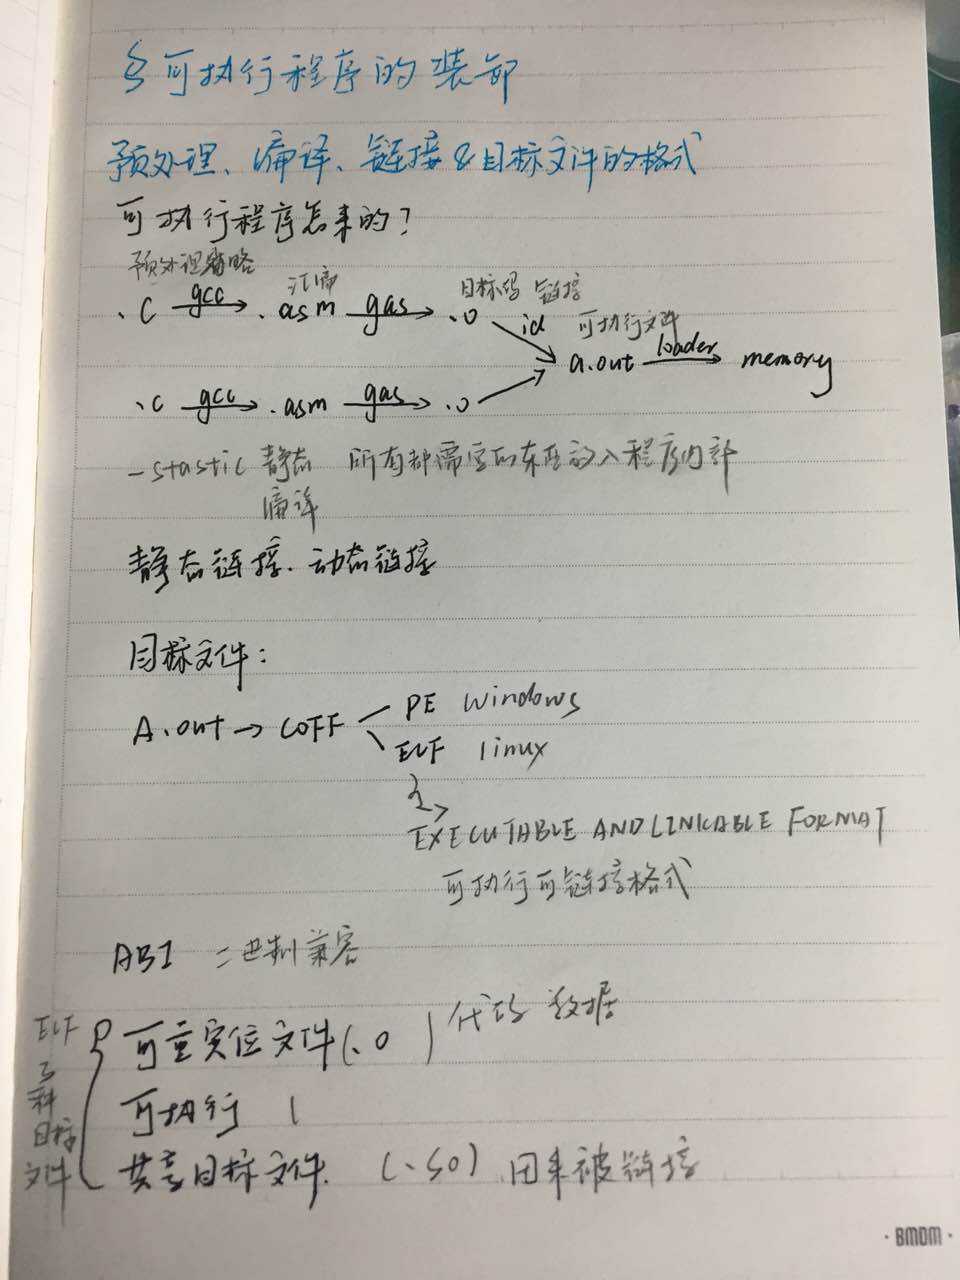 §可执行程序的装卸
预处理、编译、链接&目标文件的格式
可执行程序怎来的?
预处理省略 汇编 目标码 链接
.C gcc .asm gas .o ld 可执行文件
a.out loader memory
.c gcc .asm gas .o
-stastic 静态 所有都需要的东西放入程序内部
编译
静态链接、动态链接
目标文件:
A.out → COFF PE Windows
ELF linux
EXECUTABLE AND LINKABLE FORMAT
可执行可链接格式
ABI 二进制兼容
ELF 3种目标文件
可重定位文件(.o) 代码 数据
可执行
共享目标文件. (.so) 用来被链接
·BMDM·